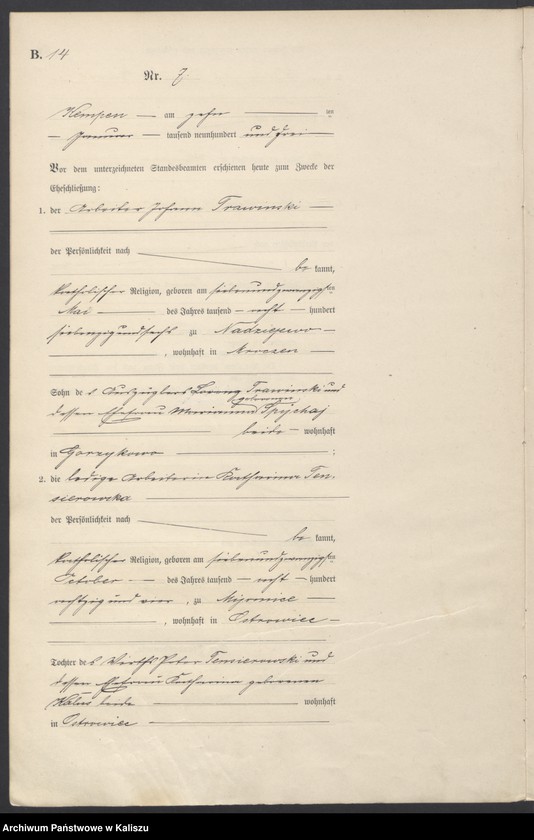 B. 14
Nr. 7.
Kempen — am zehn — ten
— Januar — tausend neunhundert und drei —
Vor dem unterzeichneten Standesbeamten erschienen heute zum Zwecke der
Eheschließung:
1. der Arbeiter Johann Trawinski —
der Persönlichkeit nach
be kannt,
katholischer Religion, geboren am siebenundzwanzigsten
Mai — des Jahres tausend — acht — hundert
siebenzig und sechs zu Nadziejewo —
, wohnhaft in
Sohn des Auszüglers Trawinski und
dessen Ehefrau geborene Spychaj
beide — wohnhaft
in Gorzykowo — ;
2. die ledige Arbeiterin Katharina Ten-
sierowska —
der Persönlichkeit nach
be kannt,
katholischer Religion, geboren am siebenundzwanzigsten
October — des Jahres tausend — acht — hundert
achtzig und vier , zu Mijomice —
, wohnhaft in Ostrowiec —
Tochter des Wirths Peter Tensierowski und
dessen Ehefrau Katharina geborenen
beide — wohnhaft
in Ostrowiec —
Archiwum Państwowe w Kaliszu